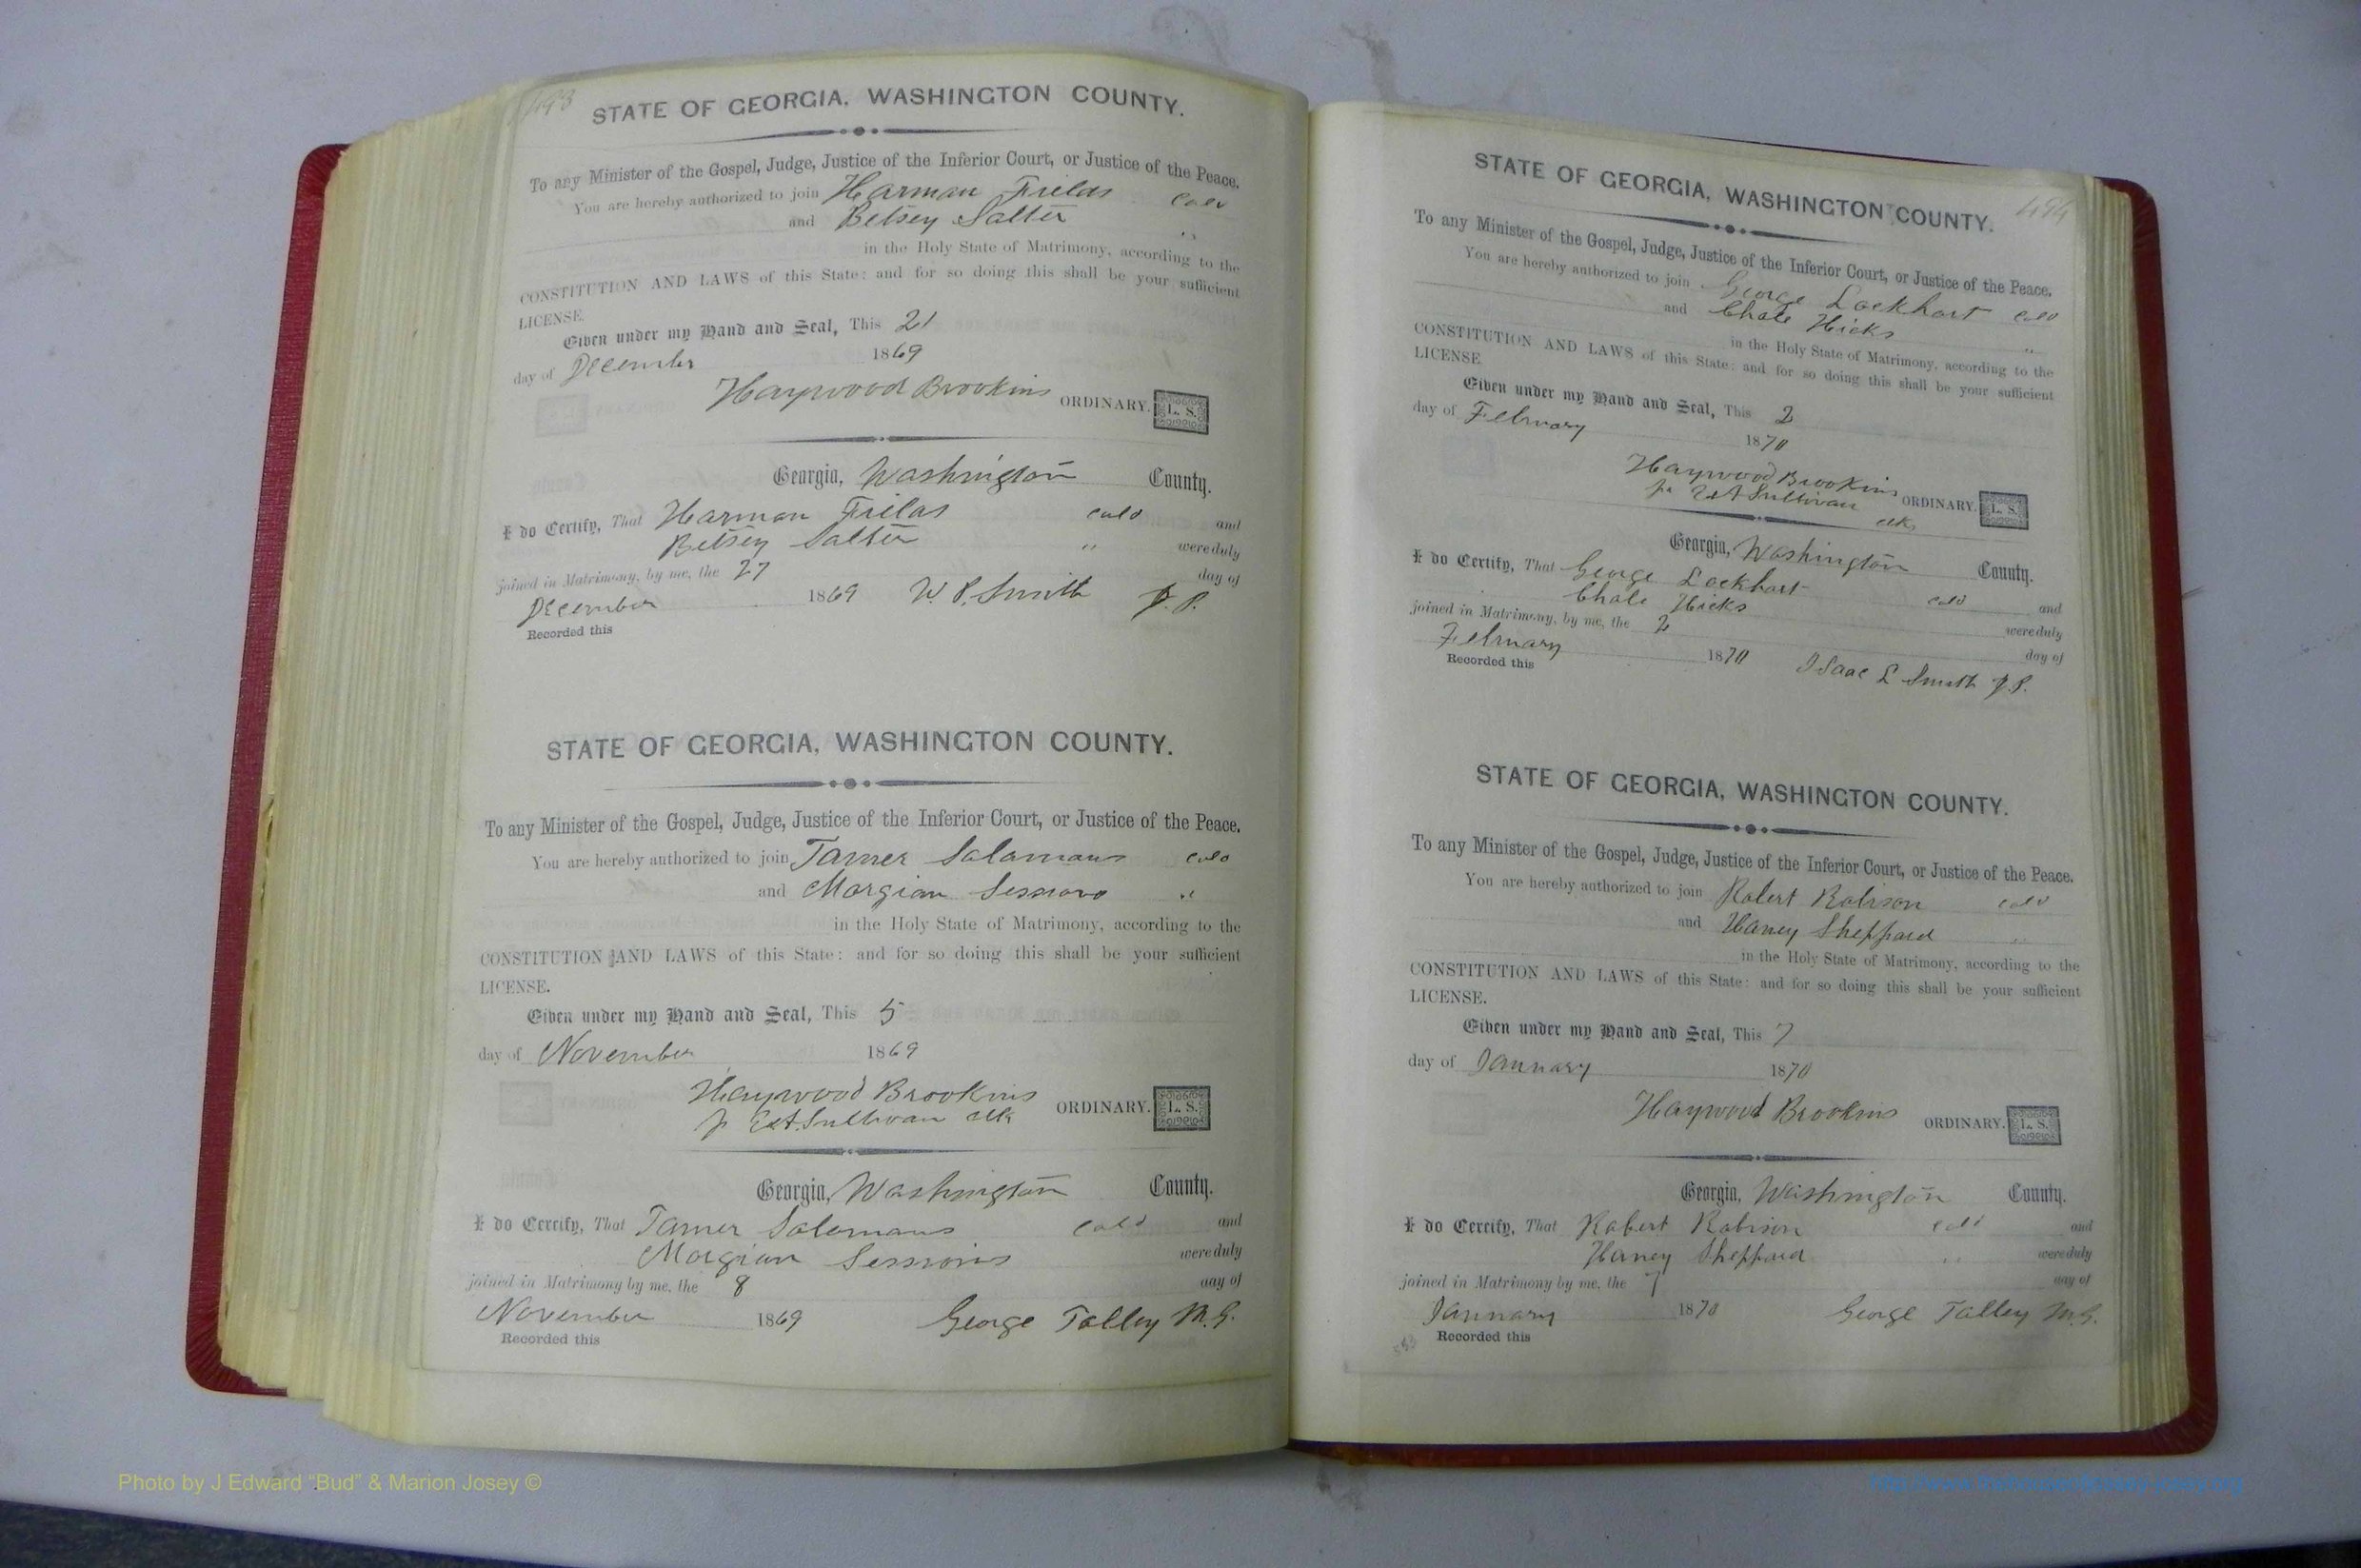 493
STATE OF GEORGIA. WASHINGTON COUNTY.
To any Minister of the Gospel, Judge, Justice of the Inferior Court, or Justice of the Peace.
You are hereby authorized to join Harman Fields cold
and Betsey Salter "
in the Holy State of Matrimony, according to the
CONSTITUTION AND LAWS of this State: and for so doing this shall be your sufficient
LICENSE.
Given under my Hand and Seal, This 21
day of December 1869
Haywood Brookins ORDINARY. L. S.
Georgia, Washington County.
I do Certify, That Harman Fields cold and
Betsey Salter " were duly
joined in Matrimony, by me, the 27 day of
December 1869 W. P. Smith J. P.
Recorded this
STATE OF GEORGIA, WASHINGTON COUNTY.
To any Minister of the Gospel, Judge, Justice of the Inferior Court, or Justice of the Peace.
You are hereby authorized to join Tarner Salamans cold
and Morgian Sessions "
in the Holy State of Matrimony, according to the
CONSTITUTION AND LAWS of this State: and for so doing this shall be your sufficient
LICENSE.
Given under my Hand and Seal, This 5
day of November 1869
Haywood Brookins
Sullivan clk ORDINARY. L. S.
Georgia, Washington County.
I do Certify, That Tarner Salomans cold and
Morgian Sessions were duly
joined in Matrimony by me, the 8 day of
November 1869 George Talley M. G.
Recorded this
494
STATE OF GEORGIA, WASHINGTON COUNTY.
To any Minister of the Gospel, Judge, Justice of the Inferior Court, or Justice of the Peace.
You are hereby authorized to join George Lockhart cold
and Chale Hicks "
in the Holy State of Matrimony, according to the
CONSTITUTION AND LAWS of this State: and for so doing this shall be your sufficient
LICENSE
Given under my Hand and Seal, This 2
day of February 1870
Haywood Brookins
Sullivan clk ORDINARY. L. S.
Georgia, Washington County.
I do Certify, That George Lockhart cold and
Chale Hicks were duly
joined in Matrimony, by me, the 2 day of
February 1870 Isaac L Smith J. P.
Recorded this
STATE OF GEORGIA, WASHINGTON COUNTY.
To any Minister of the Gospel, Judge, Justice of the Inferior Court, or Justice of the Peace.
You are hereby authorized to join Robert Robison cold
and Haney Sheppard "
in the Holy State of Matrimony, according to the
CONSTITUTION AND LAWS of this State: and for so doing this shall be your sufficient
LICENSE.
Given under my Hand and Seal, This 7
day of January 1870
Haywood Brookins ORDINARY. L. S.
Georgia, Washington County.
I do Certify, That Robert Robison cold and
Haney Sheppard " were duly
joined in Matrimony by me, the 7 day of
January 1870 George Talley M. G.
Recorded this
Photo by J Edward “Bud” & Marion Josey ©